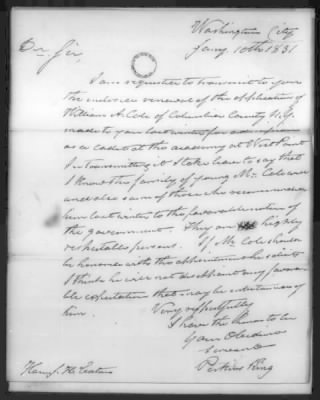 Washington City
Jany. 10th 1831
Dr Sir,
I am requested to transmit to you
the enclosed renewal of the application of
William A. Cole of Columbia County N.Y.
made to you last winter for
as a cadet at the academy at West Point
In transmitting it I take leave to say that
I know the family of young Mr. Cole
and also some of those who recommended
him last winter to the favorable notice of
the government. They are highly
respectable persons. If Mr Cole should
be honored with the appointment he solicits
I think he will not disappoint any favora-
ble expectation that may be entertained of
him.
Very respectfully
I have the honor to be
Your Obedient
Servant
Perkins King
Hon. J. H. Eaton